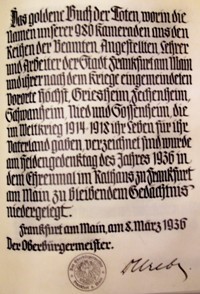 Das goldene Buch der Toten, worin die
Namen unserer 980 Kameraden aus den
Reihen der Beamten, Angestellten, Lehrer
und Arbeiter der Stadt Frankfurt am Main
und ihrer nach dem Kriege eingemeindeten
Vororte Höchst, Griesheim, Zeilsheim,
Schwanheim, Nied und Sossenheim, die
im Weltkrieg 1914-1918 ihr Leben für ihr
Vaterland gaben, verzeichnet sind wurde
am Heldengedenktag des Jahres 1936 in
dem Ehrenmal im Rathaus zu Frankfurt
am Main zu bleibendem Gedächtnis
niedergelegt.
Frankfurt am Main, am 8. März 1936
Der Oberbürgermeister.